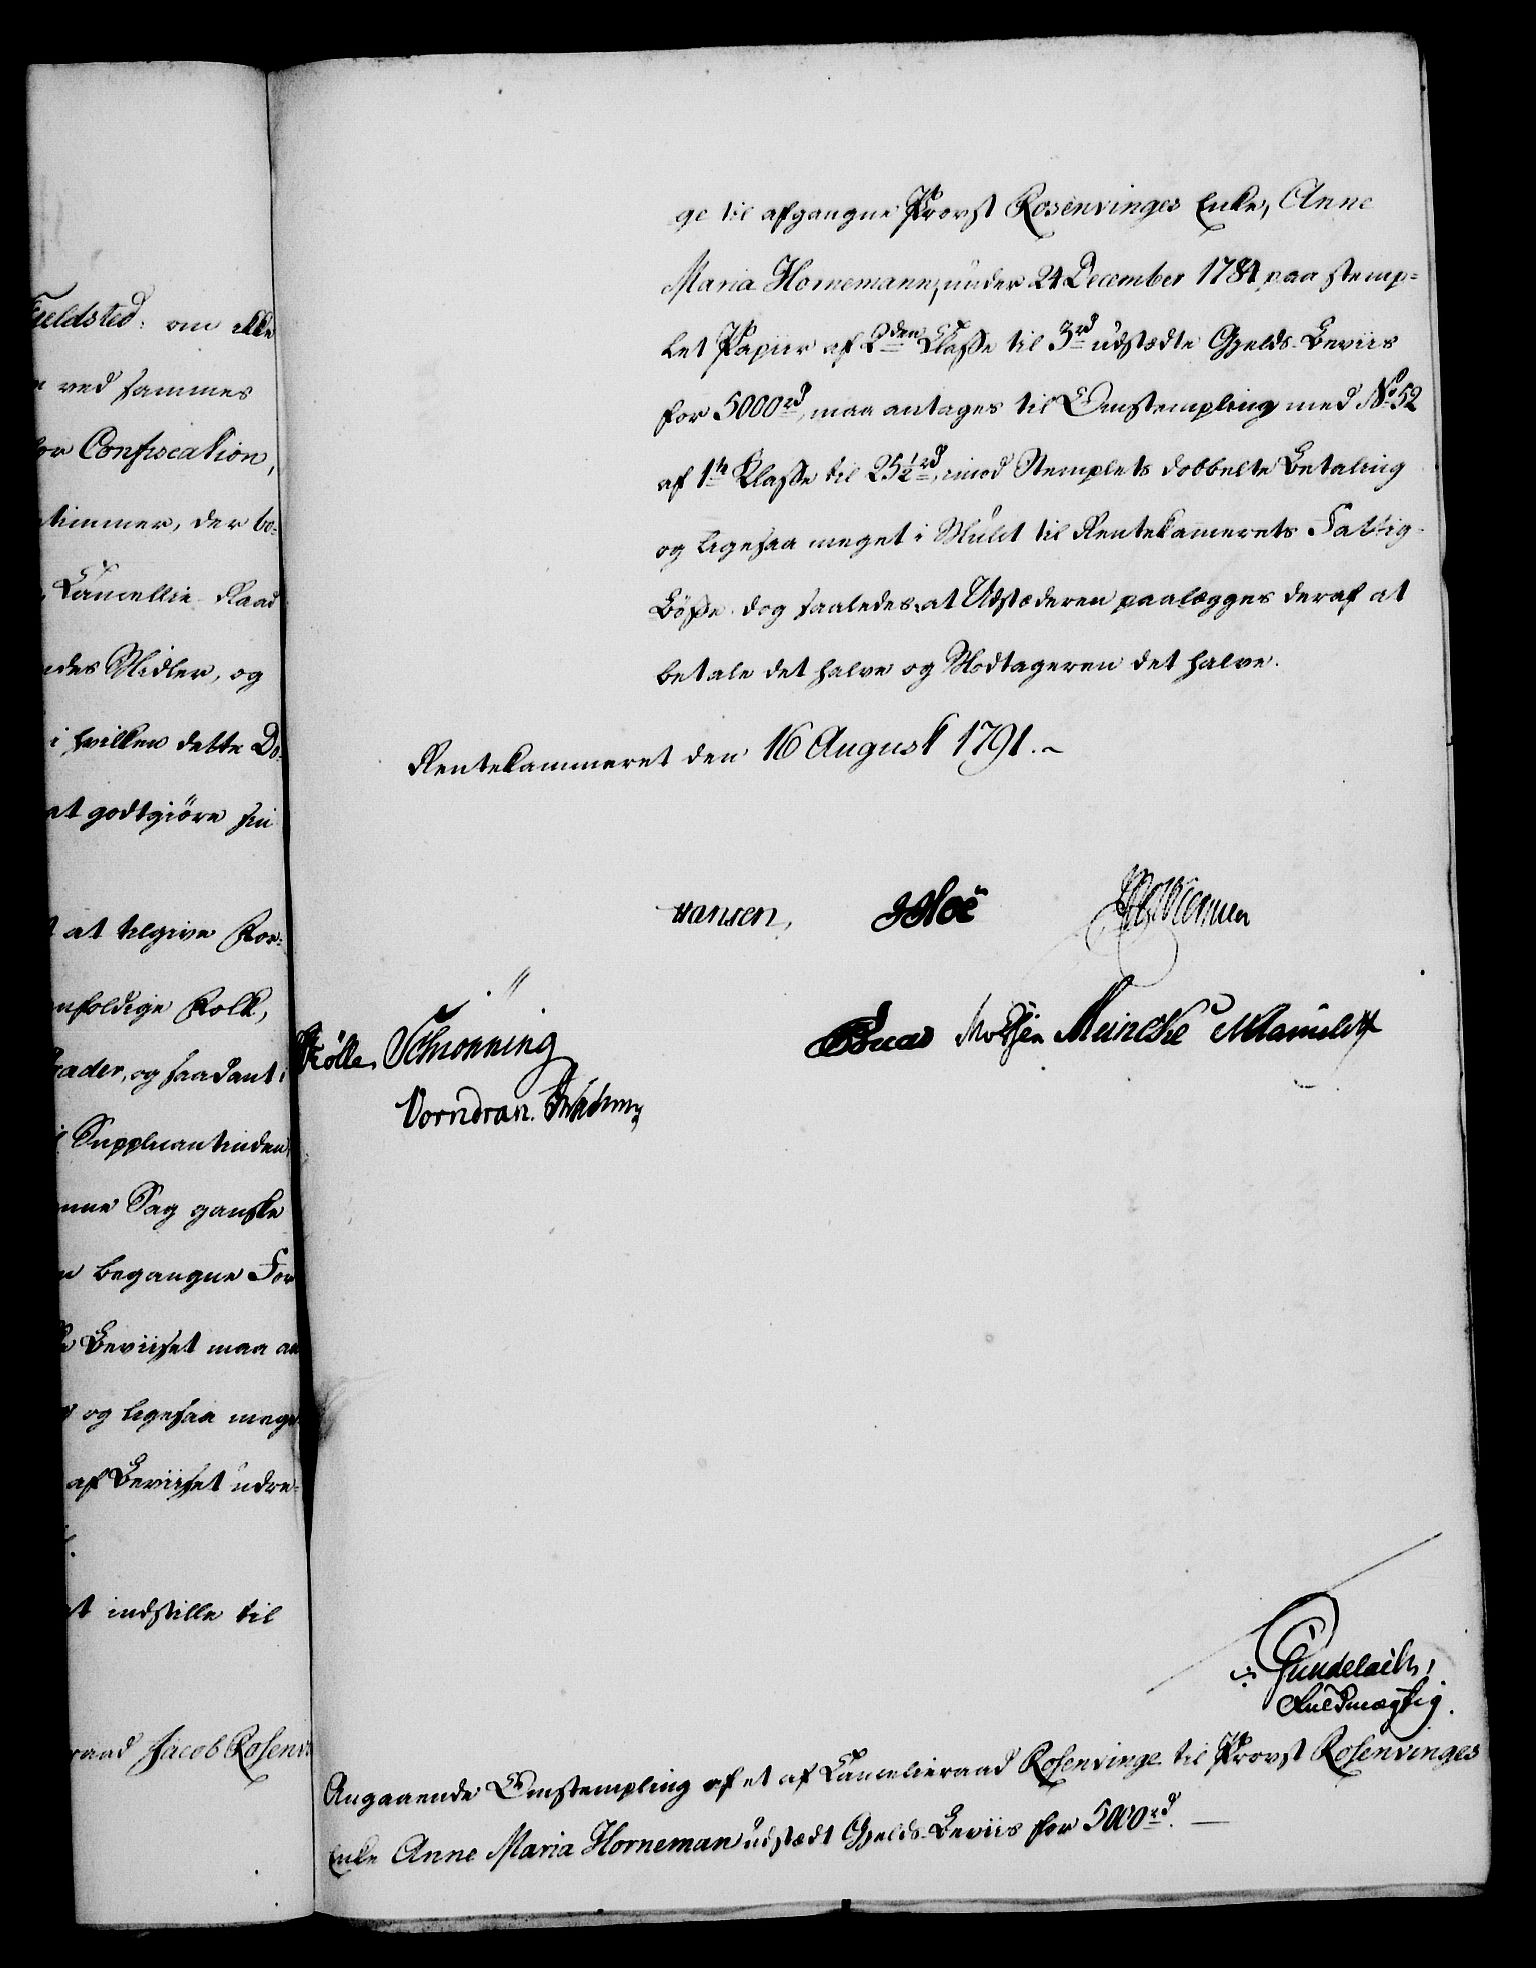 Fieldsted: om ikke
ved sammes
for Confiscation,
timmer, der be-
Cancellie-Raad
ndes Midler, og
i hvilken dette Do-
at godtgiöre sin
at tilgive For-
nfoldige Folk,
og saadant
Supplicantinden
nne Sag ganske
begangne For
Beviiset maa an
og ligesaa meget
af Beviiset udre-
at indstille til
raad Jacob Rosenvi
ge til afgangne Provst Rosenvinges Enke, Anne
Maria Hornemann, under 24 December 1784 paa stemp-
let Papiir af 2den Classe til 3rd udstædte Gjelds-Beviis
for 5000rd, maa antages til Omstempling med No 52
af 1te Klasse til 25½rd, imod Stemplets dobbelte Betaling
og ligesaa meget i Mulct til Rentekamerets Fattig-
Bösse dog saaledes, at Udstæderen paalægges deraf at
betale det halve og Modtageren det halve.
Rentekammeret den 16 August 1791.
Hansen,
Schönning
Meincke
Vorndran.
Gundelach,
Fuldmægtig.
Angaaende Omstempling af et af Cancelieraad Rosenvinge til Provst Rosenvinges
Enke Anne Maria Horneman udstædt Gjelds-Beviis for 5000rd.